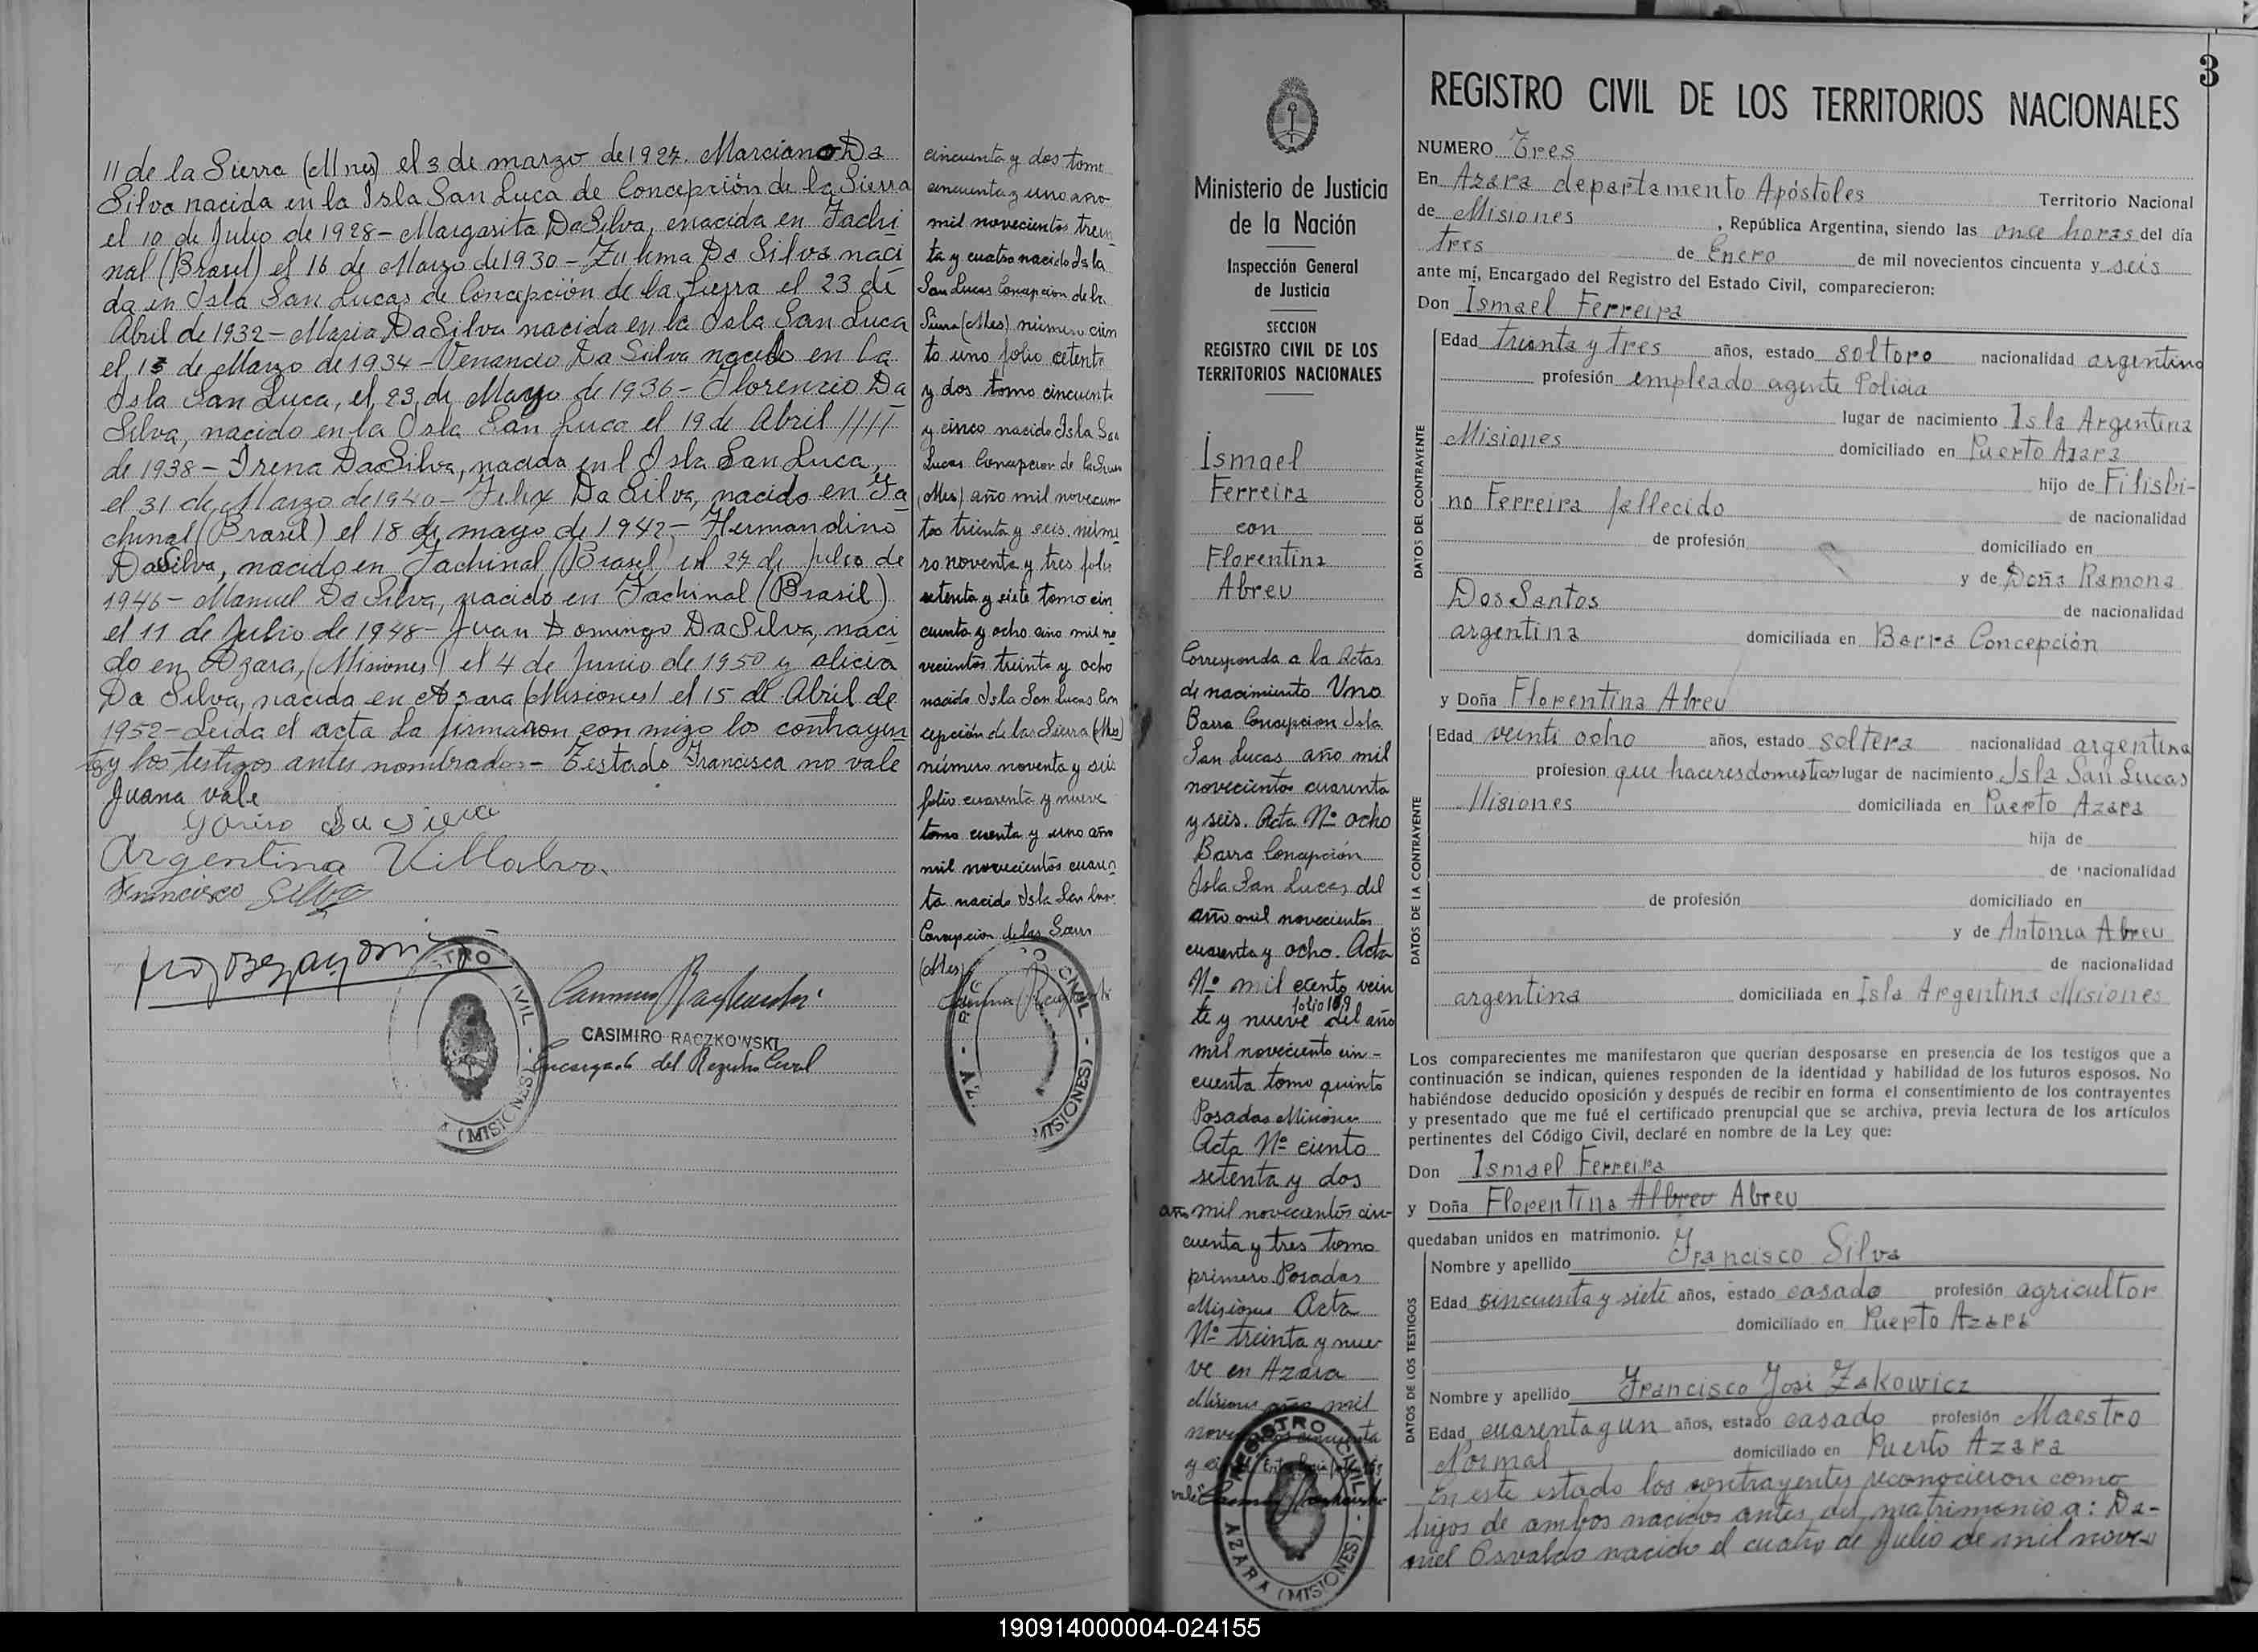 11 de la Sierra (Mnes) el 3 de marzo de 1927. Marciano Da
Silva nacida en la Isla San Luca de Concepción de la Sierra
el 10 de Julio de 1928 - Margarita DaSilva, enacida en Fachi
nal (Brasil) el 16 de Marzo de 1930 - Zulema Da Silva naci
da en Isla San Lucas de Concepción de la Sierra el 23 de
Abril de 1932 - Maria DaSilva nacida en la Isla San Luca
el 15 de Marzo de 1934 - Venancio Da Silva nacido en la
Isla San Luca, el 23 de Mayo de 1936 - Florencio Da
Silva, nacido en la Isla San Luca el 19 de Abril ////
de 1938 - Irena DaSilva, nacida en l Isla San Luca,
el 31 de Marzo de 1940 - Felix Da Silva, nacido en Fa
chinal (Brasil) el 18 de mayo de 1942 - Hermandino
DaSilva, nacido en Fachinal (Brasil) el 27 de julio de
1946 - Manuel Da Silva, nacido en Fachinal (Brasil)
el 11 de Julio de 1948 - Juan Domingo DaSilva, naci
do en Azara, (Misiones) el 4 de Junio de 1950 y alicia
Da Silva, nacida en Azara (Misiones) el 15 de Abril de
1952 - Leida el acta la firmaron conmigo los contrayen
tes y los testigos antes nombrados - Testado Francisca no vale
Juana vale
Argentina Villalva.
Francisco Silva
CASIMIRO RACZKOWSKI
Encargado del Registro Civil
cincuenta y dos tomo
cincuenta y uno año
mil novecientos trein
ta y cuatro nacido Isla
San Lucas Concepcion de la
Sierra (Mes) número cien
to uno folio setenta
y dos tomo cincuenta
y cinco nacido Isla San
Lucas Concepcion de la Sierra
(Mes) año mil novecien
tos treinta y seis. núme
ro noventa y tres folio
setenta y siete tomo cin
cuenta y ocho año mil no
vecientos treinta y ocho
nacido Isla San Lucas Con
cepción de las Sierra (Mes)
número noventa y seis
folio cuarenta y nueve
tomo cuenta y uno año
mil novecientos cuaren
ta nacido Isla San Lucas
Concepcion de las Sierra
(Mes)
Ministerio de Justicia
de la Nación
Inspección General
de Justicia
SECCION
REGISTRO CIVIL DE LOS
TERRITORIOS NACIONALES
Ismael
Ferreira
con
Florentina
Abreu
Corresponda a la Actas
de nacimiento Uno
Barra Concepcion Isla
San Lucas año mil
novecientos cuarenta
y seis. Acta Nº ocho
Barra Concepción
Isla San Lucas del
año mil novecientos
cuarenta y ocho. Acta
Nº mil ciento vein
folio 189
te y nueve del año
mil noveciento cin-
cuenta tomo quinto
Posadas Misiones
Acta Nº ciento
setenta y dos
año mil novecientos cin-
cuenta y tres tomo
primero Posadas
Misiones Acta
Nº treinta y nue
ve en Azara
Misiones año mil
novecientos cincuenta
vale
REGISTRO CIVIL - AZARA (MISIONES)
3
REGISTRO CIVIL DE LOS TERRITORIOS NACIONALES
NUMERO Tres
En Azara departamento Apóstoles Territorio Nacional
de Misiones, República Argentina, siendo las once horas del día
tres de Enero de mil novecientos cincuenta y seis
ante mí, Encargado del Registro del Estado Civil, comparecieron:
Don Ismael Ferreira
DATOS DEL CONTRAYENTE
Edad treinta y tres años, estado soltero nacionalidad argentino
profesión empleado agente Policia
lugar de nacimiento Isla Argentina
Misiones domiciliado en Puerto Azara
hijo de Filisbi-
no Ferreira fellecido de nacionalidad
de profesión domiciliado en
y de Doña Ramona
Dos Santos de nacionalidad
argentina domiciliada en Barra Concepción
y Doña Florentina Abreu
DATOS DE LA CONTRAYENTE
Edad veinti ocho años, estado soltera nacionalidad argentina
profesion que haceres domesticos lugar de nacimiento Isla San Lucas
Misiones domiciliada en Puerto Azara
hija de
de nacionalidad
de profesión domiciliado en
y de Antonia Abreu
de nacionalidad
argentina domiciliada en Isla Argentina Misiones
Los comparecientes me manifestaron que querían desposarse en presencia de los testigos que a
continuación se indican, quienes responden de la identidad y habilidad de los futuros esposos. No
habiéndose deducido oposición y después de recibir en forma el consentimiento de los contrayentes
y presentado que me fué el certificado prenupcial que se archiva, previa lectura de los artículos
pertinentes del Código Civil, declaré en nombre de la Ley que:
Don Ismael Ferreira
y Doña Florentina Albreu Abreu
quedaban unidos en matrimonio.
DATOS DE LOS TESTIGOS
Nombre y apellido Francisco Silva
Edad cincuenta y siete años, estado casado profesión agricultor
domiciliado en Puerto Azara
Nombre y apellido Francisco José Zakowicz
Edad cuarenta y un años, estado casado profesión Maestro
Normal domiciliado en Puerto Azara
En este estado los contrayentes reconocieron como
hijos de ambos nacidos antes del matrimonio a: Da-
niel Osvaldo nacido el cuatro de Julio de mil nove-
190914000004-024155